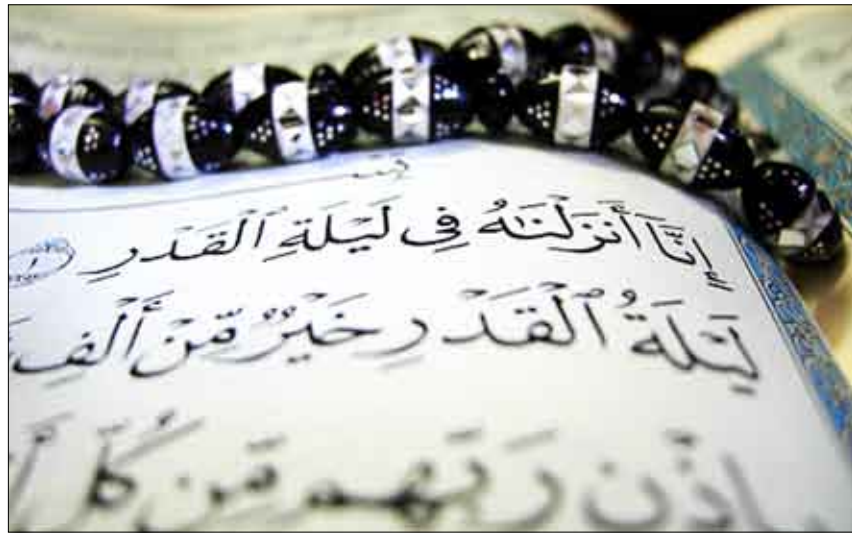 إِنَّآ أَنزَلْنَٰهُ فِى لَيْلَةِ ٱلْقَدْرِ ١
لَيْلَةُ ٱلْقَدْرِ خَيْرٌ مِّنْ أَلْفِ
رَبِّهِم مِّن كُلِّ